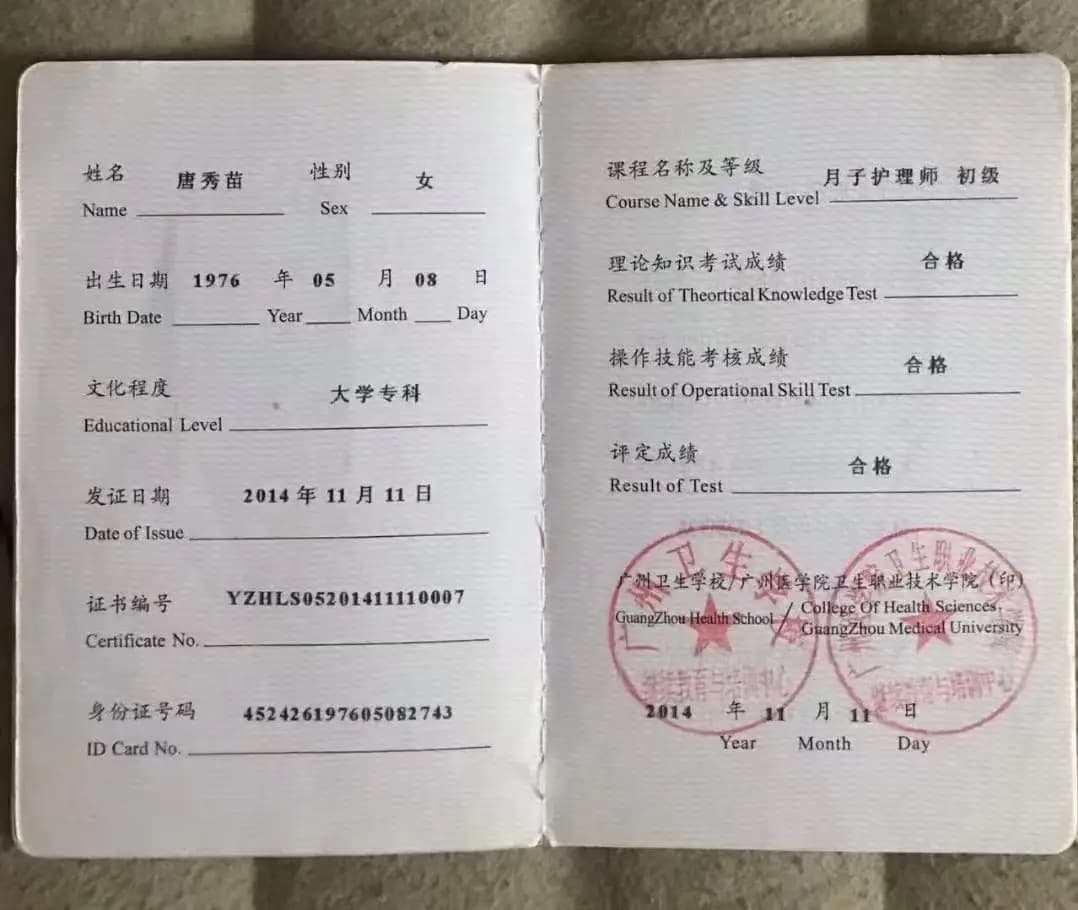 姓名 唐秀苗 性别 女
Name Sex
出生日期 1976 年 05 月 08 日
Birth Date Year Month Day
文化程度 大学专科
Educational Level
发证日期 2014 年 11 月 11 日
Date of Issue
证书编号 YZHLS05201411110007
Certificate No.
身份证号码 452426197605082743
ID Card No.
课程名称及等级 月子护理师 初级
Course Name & Skill Level
理论知识考试成绩 合格
Result of Theortical Knowledge Test
操作技能考核成绩 合格
Result of Operational Skill Test
评定成绩 合格
Result of Test
广州卫生学校/广州医学院卫生职业技术学院（印）
GuangZhou Health School / College Of Health Sciences,
GuangZhou Medical University
2014 年 11 月 11 日
Year Month Day
广州卫生学校
继续教育与培训中心
继续教育与培训中心